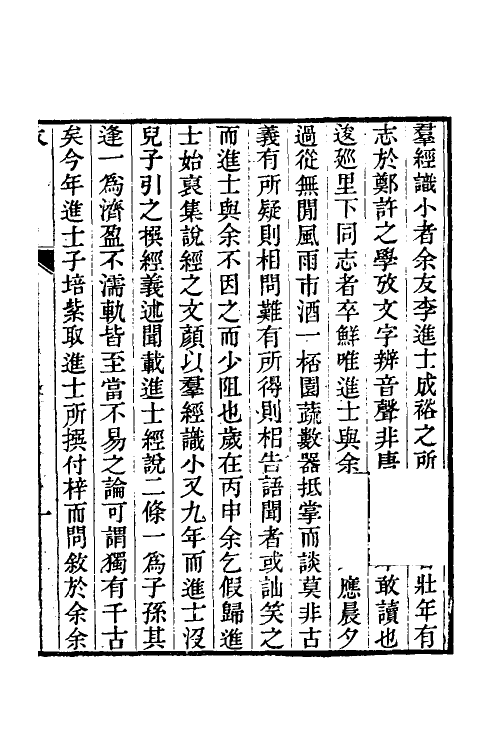 羣經識小者余友李進士成裕之所壯年有
志於鄭許之學攷文字辨音聲非唐敢讀也
逡廵里下同志者卒鮮唯進士與余應晨夕
過從無閒風雨市酒一桮園蔬數器抵掌而談莫非古
義有所疑則相問難有所得則相告語聞者或訕笑之
而進士與余不因之而少阻也歲在丙申余乞假歸進
士始裒集說經之文顏以羣經識小又九年而進士沒
兒子引之撰經義述聞載進士經說二條一爲子孫其
逢一爲濟盈不濡軌皆至當不易之論可謂獨有千古
矣今年進士子培紫取進士所撰付梓而問敘於余余